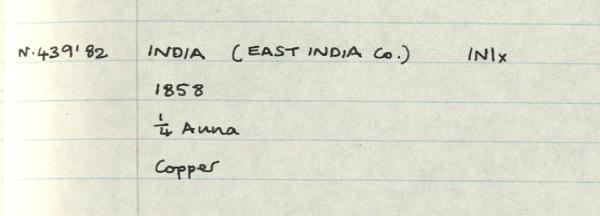 N.439'82 INDIA (EAST INDIA Co.) INIx
1858
1/4 Anna
Copper